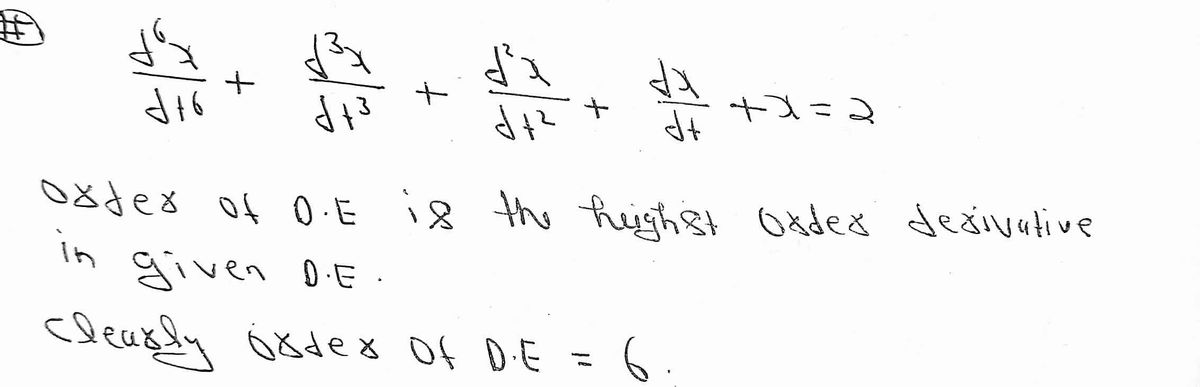 # d⁶x/dt⁶ + d³x/dt³ + d²x/dt² + dx/dt + x = 2
order of D.E is the heighst order derivative
in given D.E.
clearly order of D.E = 6.